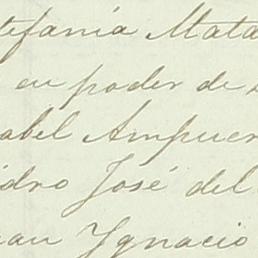 tefanía Mata
en poder de
abel Ampuer
idro José del
uan Ygnacio